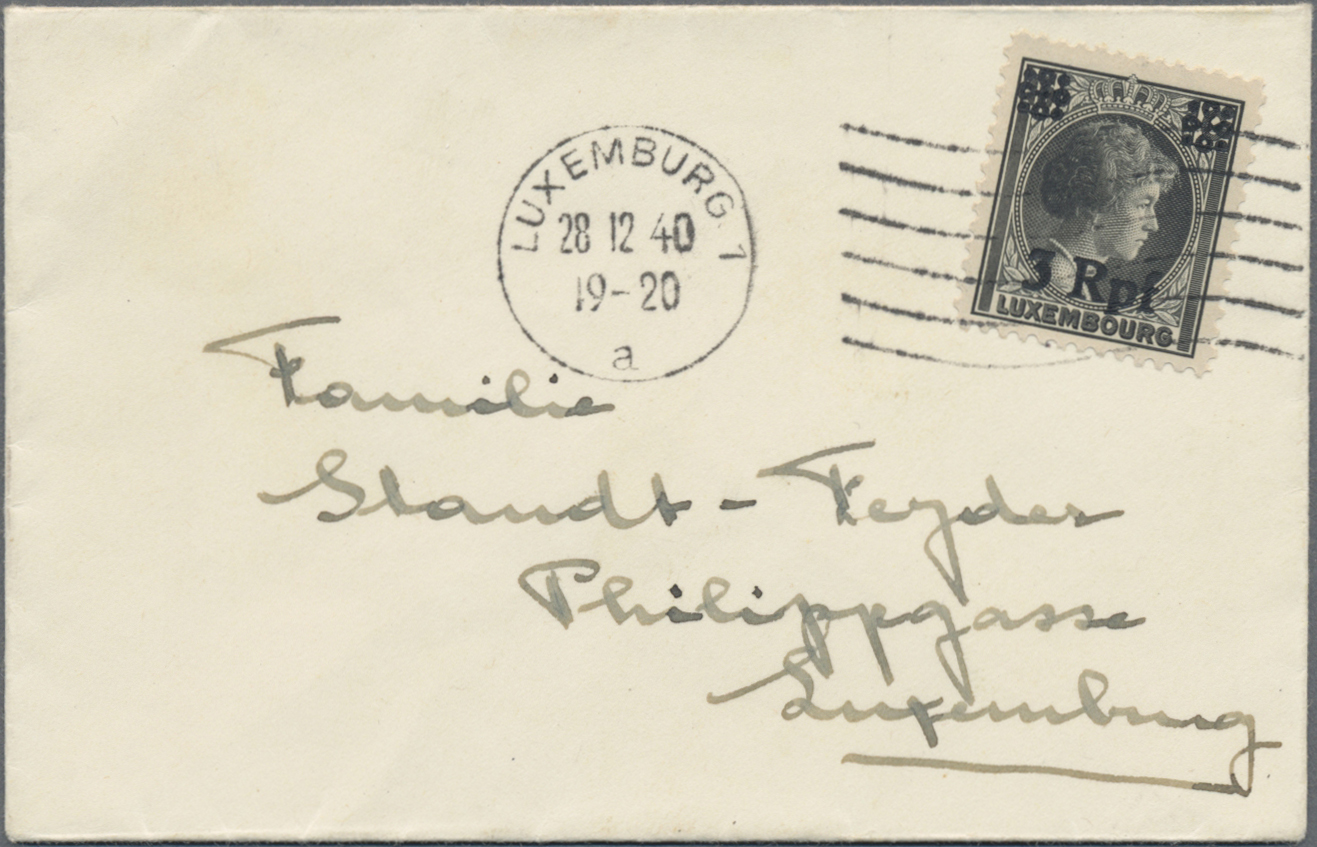 LUXEMBURG 1
28 12 40
19-20
a
3 Rpf
LUXEMBOURG
Familie
Standt - Feyder
Philippgasse
Luxemburg